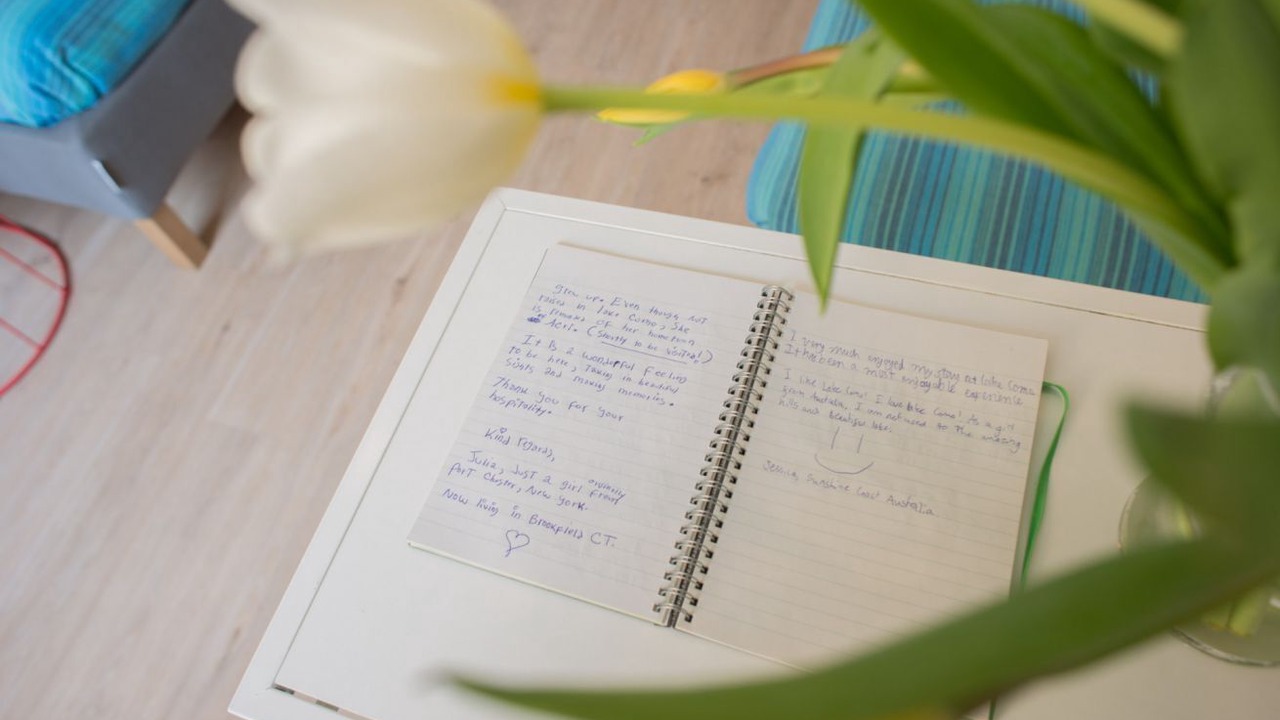 grew up. Even though not
raised in Lake Como, she
is prouder of her hometown
Acri. (shortly to be visited!)
It is a wonderful feeling
to be here, taking in beautiful
sights and making memories.
Thank you for your
hospitality.
Kind regards,
Julia, Just a girl originally
Port Chester, New York.
Now living in Brookfield CT.
I very much enjoyed my stay at Lake Como
It has been a most enjoyable experience
I like Lake Como! I love Lake Como! As a girl
from Australia, I am not used to the amazing
hills and beautiful lake.
Jessica, Sunshine Coast Australia